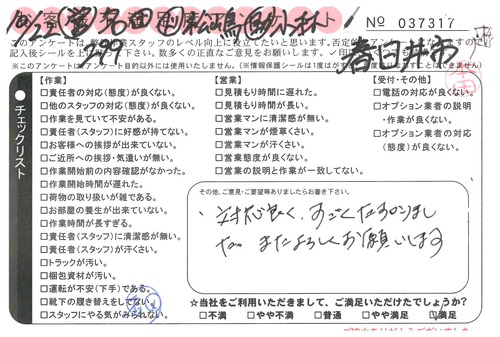 No 037317
春日井市
このアンケートは
記入後シールを
※このアンケートは目的以外には使用いたしません。
チェックリスト
【作業】
□責任者の対応(態度)が良くない。
□他のスタッフの対応(態度)が良くない。
□作業を見ていて不安がある。
□責任者(スタッフ)に好感が持てない。
□お客様への挨拶が出来ていない。
□ご近所への挨拶・気遣いが無い。
□作業開始前の内容確認がなかった。
□作業開始時間が遅れた。
□荷物の取り扱いが雑である。
□お部屋の養生が出来ていない。
□作業時間が長すぎる。
□責任者(スタッフ)に清潔感が無い。
□責任者(スタッフ)が汗くさい。
□トラックが汚い。
□梱包資材が汚い。
□運転が不安(下手)である。
□靴下の履き替えをしてない。
□スタッフにやる気がみられない。
【営業】
□見積もり時間に遅れた。
□見積もり時間が長い。
□営業マンに清潔感が無い。
□営業マンが煙草くさい。
□営業マンが汗くさい。
□営業態度が良くない。
□営業の説明と作業が一致してない。
【受付・その他】
□電話の対応が良くない。
□オプション業者の説明
・作業が良くない。
□オプション業者の対応
(態度)が良くない。
その他、ご意見・ご要望等ありましたらお書き下さい。
対応良く、すごくたすかりまし
た。またよろしくお願いします
☆当社をご利用いただきまして、ご満足いただけたでしょうか?
□不満 □やや不満 □普通 □やや満足 □満足